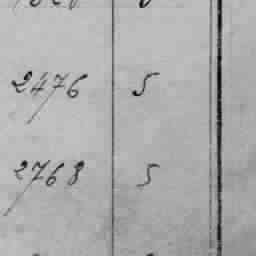 2476 5
2768 5